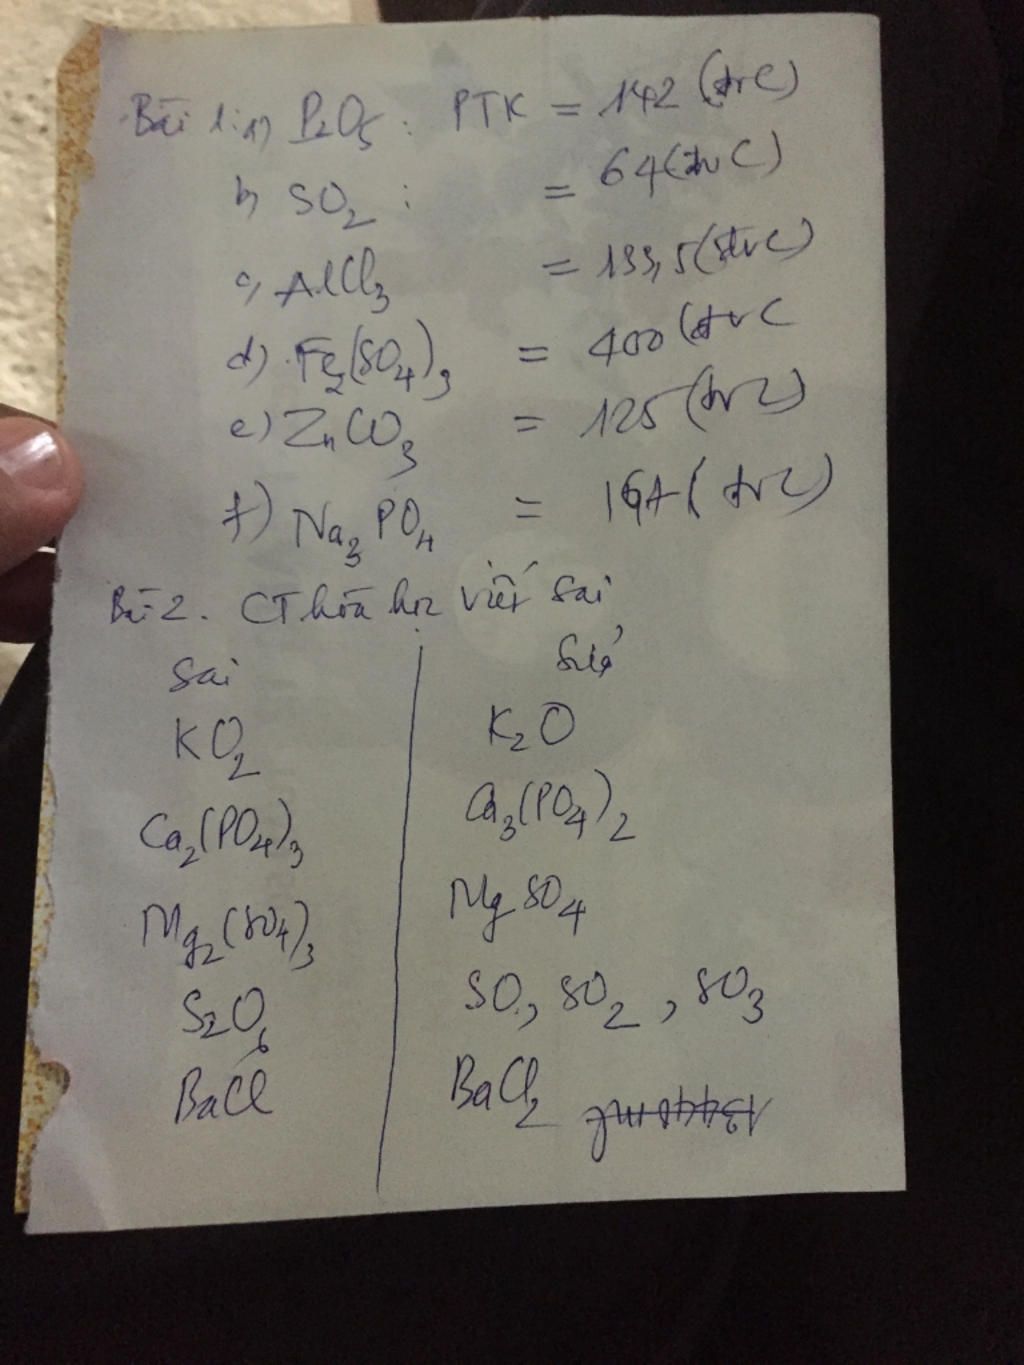 Bài 1: a) P2O5 : PTK = 142 (đvC)
b) SO2 : = 64 (đvC)
c) AlCl3 = 133,5 (đvC)
d) Fe2(SO4)3 = 400 (đvC
e) ZnCO3 = 125 (đvC)
f) Na3PO4 = 164 (đvC)
Bài 2. CT hóa học viết sai
Sai Sửa
KO2 K2O
Ca2(PO4)3 Ca3(PO4)2
Mg2(SO4)3 MgSO4
S2O6 SO, SO2, SO3
BaCl BaCl2